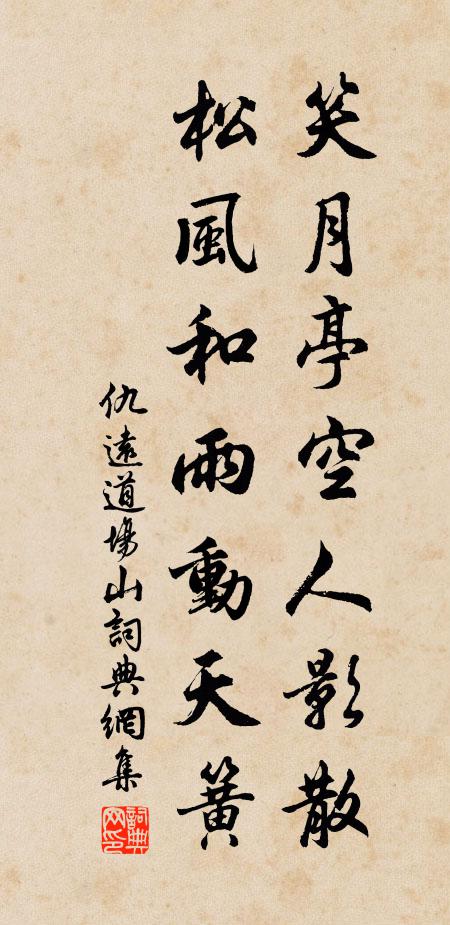 笑月亭空人影散
松風和雨動天簧
仇遠道場山詞典網集
詞典網印